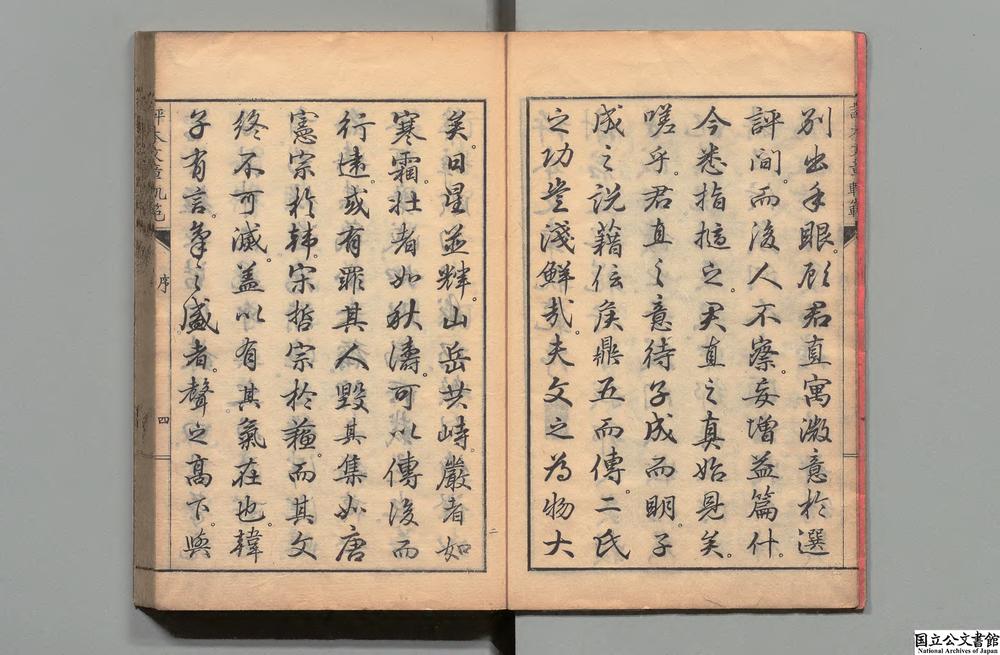 別出手眼。顧君直寓微意於選
評間。而後人不察。妄増益篇什。
今悉指擿之。君直之真始見矣。
嗟乎。君直之意待子成而明。子
成之説藉侯鼎五而傳。二氏
之功豈淺鮮哉。夫文之為物大
矣。日星並輝。山岳共峙。嚴者如
寒霜。壮者如秋濤。可以傳後而
行遠。或有罪其人毀其集如唐
憲宗於韓。宋哲宗於蘓。而其文
終不可滅。盖以有其氣在也。韓
子有言。氣之盛者。聲之高下。與
評本文章軌範
序
四
国立公文書館
National Archives of Japan